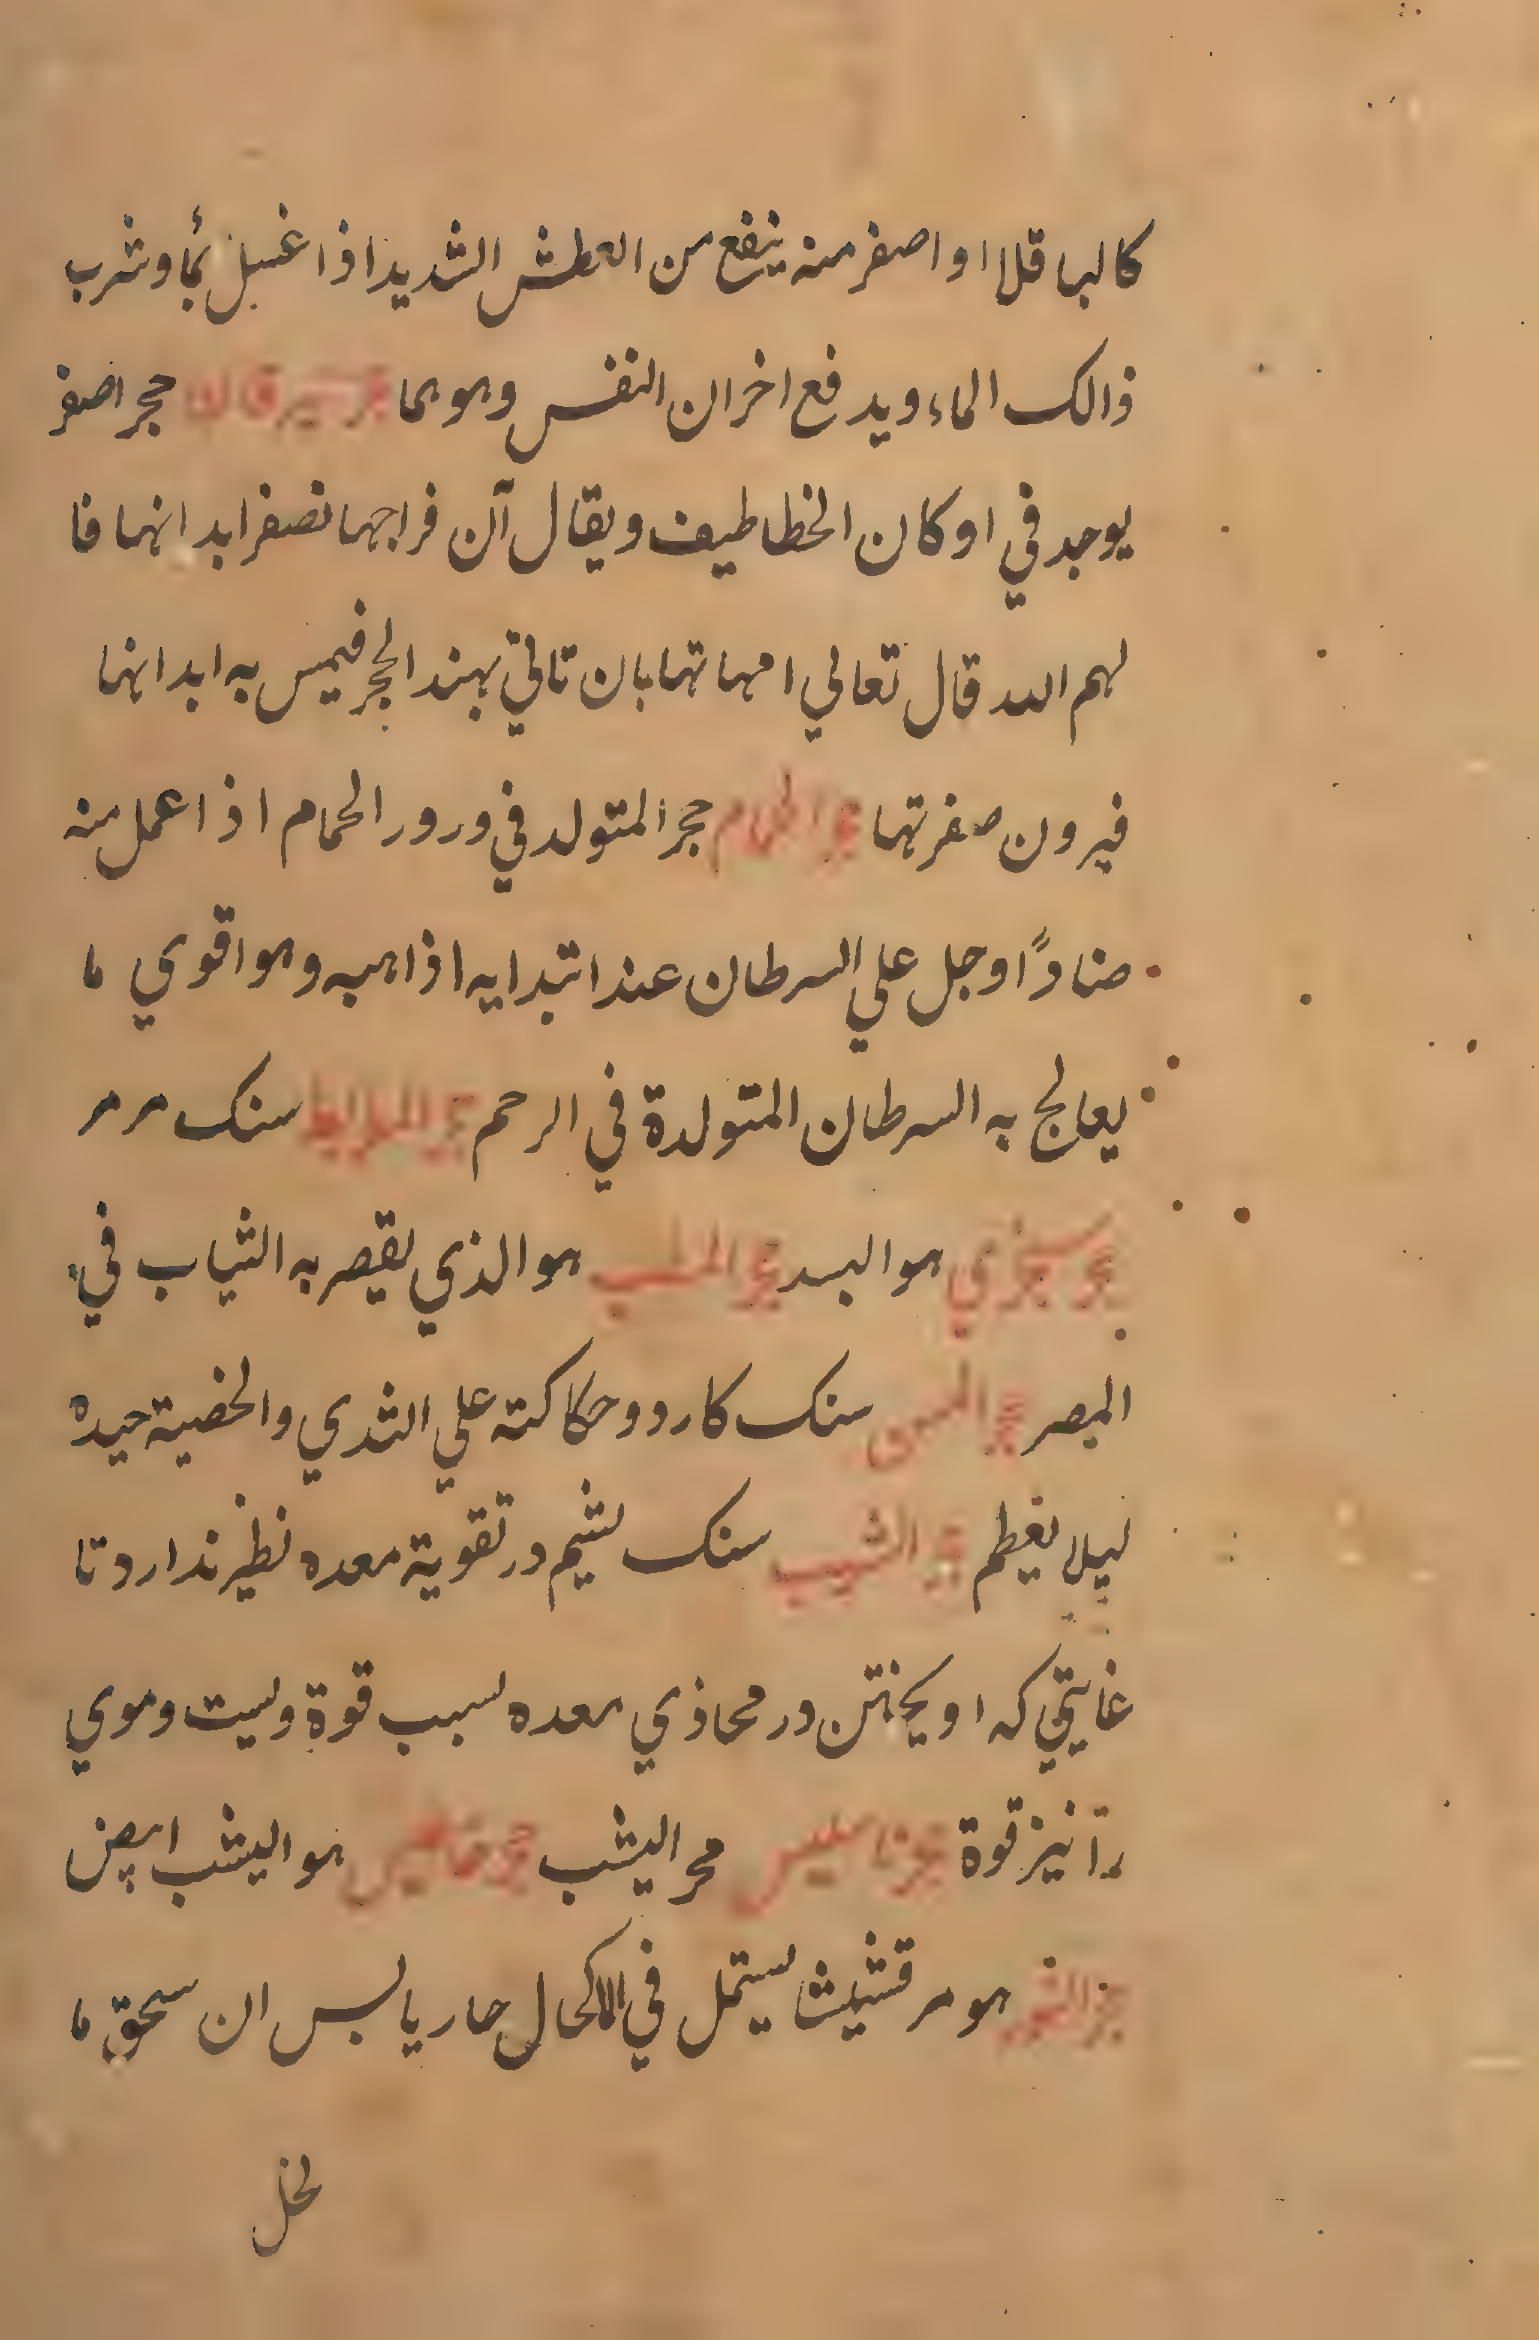 كالباقلا او اصغر منه ينفع من العطش الشديد اذا غسل بمأ وشرب
ذالك الماء ويدفع اخران النفس وهومها حجر اليرقان حجر اصفر
يوجد في اوكان الخطاطيف ويقال آن فراجها نصفر ابدانها فا
لهم الله قال تعالي امهاتها بان تاتي بهند الحجر فيمس به ابدانها
فيرون صفرتها حجر الحمام حجر المتولد في ورور الحمام اذا عمل منه
ضمادًا وجل علي السرطان عند ابتدايه اذاهبه وهو اقوي ما
يعالج به السرطان المتولدة في الرحم حجر سنك مرمر
حجر هو البسد حجر هو الذي يقصر به الثياب في
المصر حجر المسن سنك كارد وحكاكته علي الثدي والخصية جيده
ليلا يعظم حجر اليشب سنك يشم در تقوية معده نظير ندارد تا
غايتي كه اويختن در محاذي معده بسبب قوة ويست وموي
را نيز قوة حجر حجر اليشب حجر هو اليشب ابيض
حجر النور هو مرقشيثا يستمل في الاكحال حار يابس ان سحق ما
لخل